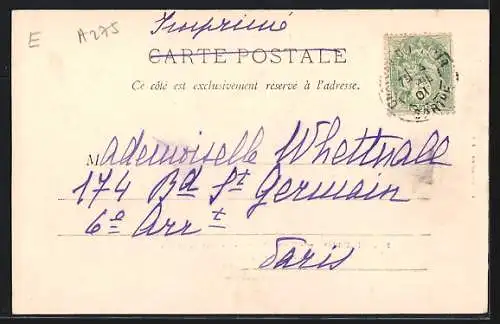 Imprimé
E A275
CARTE POSTALE
Ce côté est exclusivement réservé à l'adresse.
Mademoiselle Whettnall
174 Bd St Germain
6e Arrt
Paris